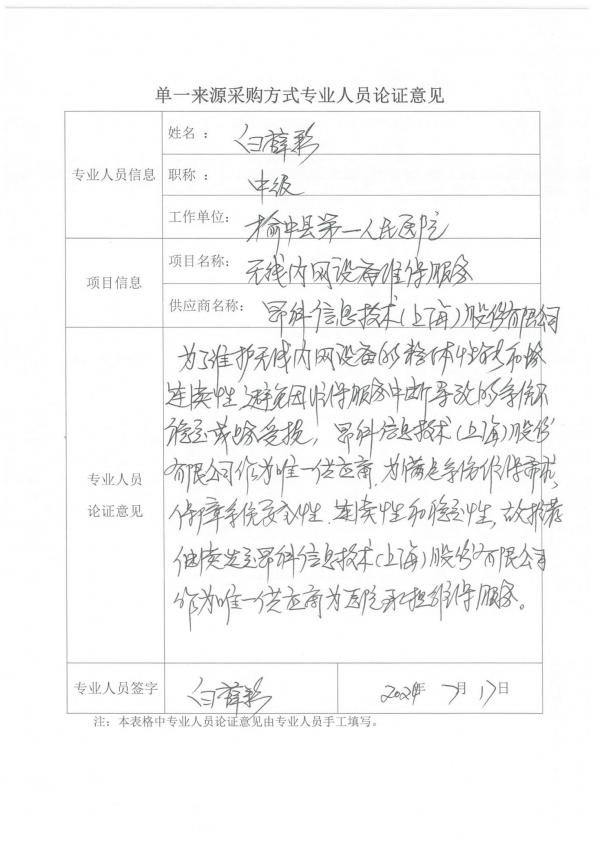 单一来源采购方式专业人员论证意见
专业人员信息
姓名： 白薛彩
职称： 中级
工作单位： 榆中县第一人民医院
项目信息
项目名称： 无线内网设备维保服务
供应商名称： 昂科信息技术(上海)股份有限公司
专业人员
论证意见
为了维护无线内网设备的整体性能和业务
连续性,避免因维保服务中断导致的系统不
稳定或业务受损,昂科信息技术(上海)股份
有限公司作为唯一供应商,为满足系统维保需求,
保障系统安全性、连续性和稳定性,故推荐
继续选定昂科信息技术(上海)股份有限公司
作为唯一供应商为医院承担维保服务。
专业人员签字 白薛彩 2024年 7月 17日
注：本表格中专业人员论证意见由专业人员手工填写。